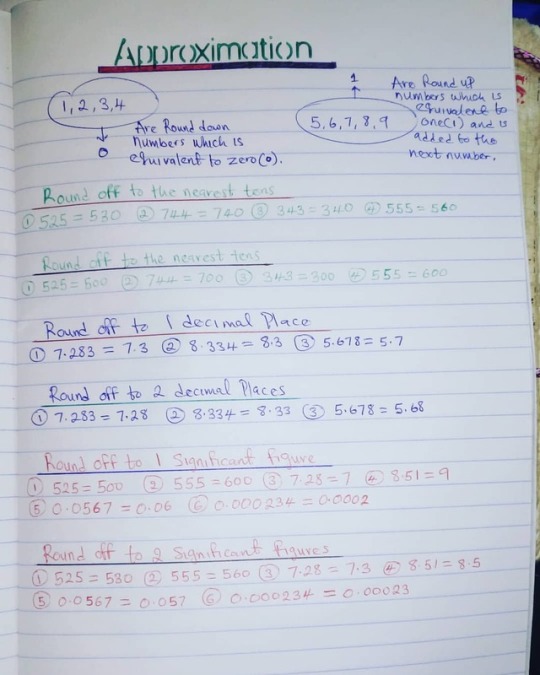 Approximation
1, 2, 3, 4
0
Are Round down
numbers which is
equivalent to zero(0).
1
5, 6, 7, 8, 9
Are Round up
numbers which is
equivalent to
one(1) and is
added to the
next number.
Round off to the nearest tens
① 525 = 530 ② 744 = 740 ③ 343 = 340 ④ 555 = 560
Round off to the nearest tens
① 525 = 500 ② 744 = 700 ③ 343 = 300 ④ 555 = 600
Round off to 1 decimal Place
① 7.283 = 7.3 ② 8.334 = 8.3 ③ 5.678 = 5.7
Round off to 2 decimal Places
① 7.283 = 7.28 ② 8.334 = 8.33 ③ 5.678 = 5.68
Round off to 1 Significant figure
① 525 = 500 ② 555 = 600 ③ 7.28 = 7 ④ 8.51 = 9
⑤ 0.0567 = 0.06 ⑥ 0.000234 = 0.0002
Round off to 2 Significant figures
① 525 = 530 ② 555 = 560 ③ 7.28 = 7.3 ④ 8.51 = 8.5
⑤ 0.0567 = 0.057 ⑥ 0.000234 = 0.00023